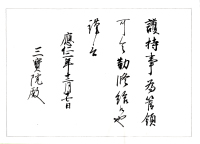 護持事為管領
可令勤修給之也
謹言
應仁二年十二月七日
三寶院殿